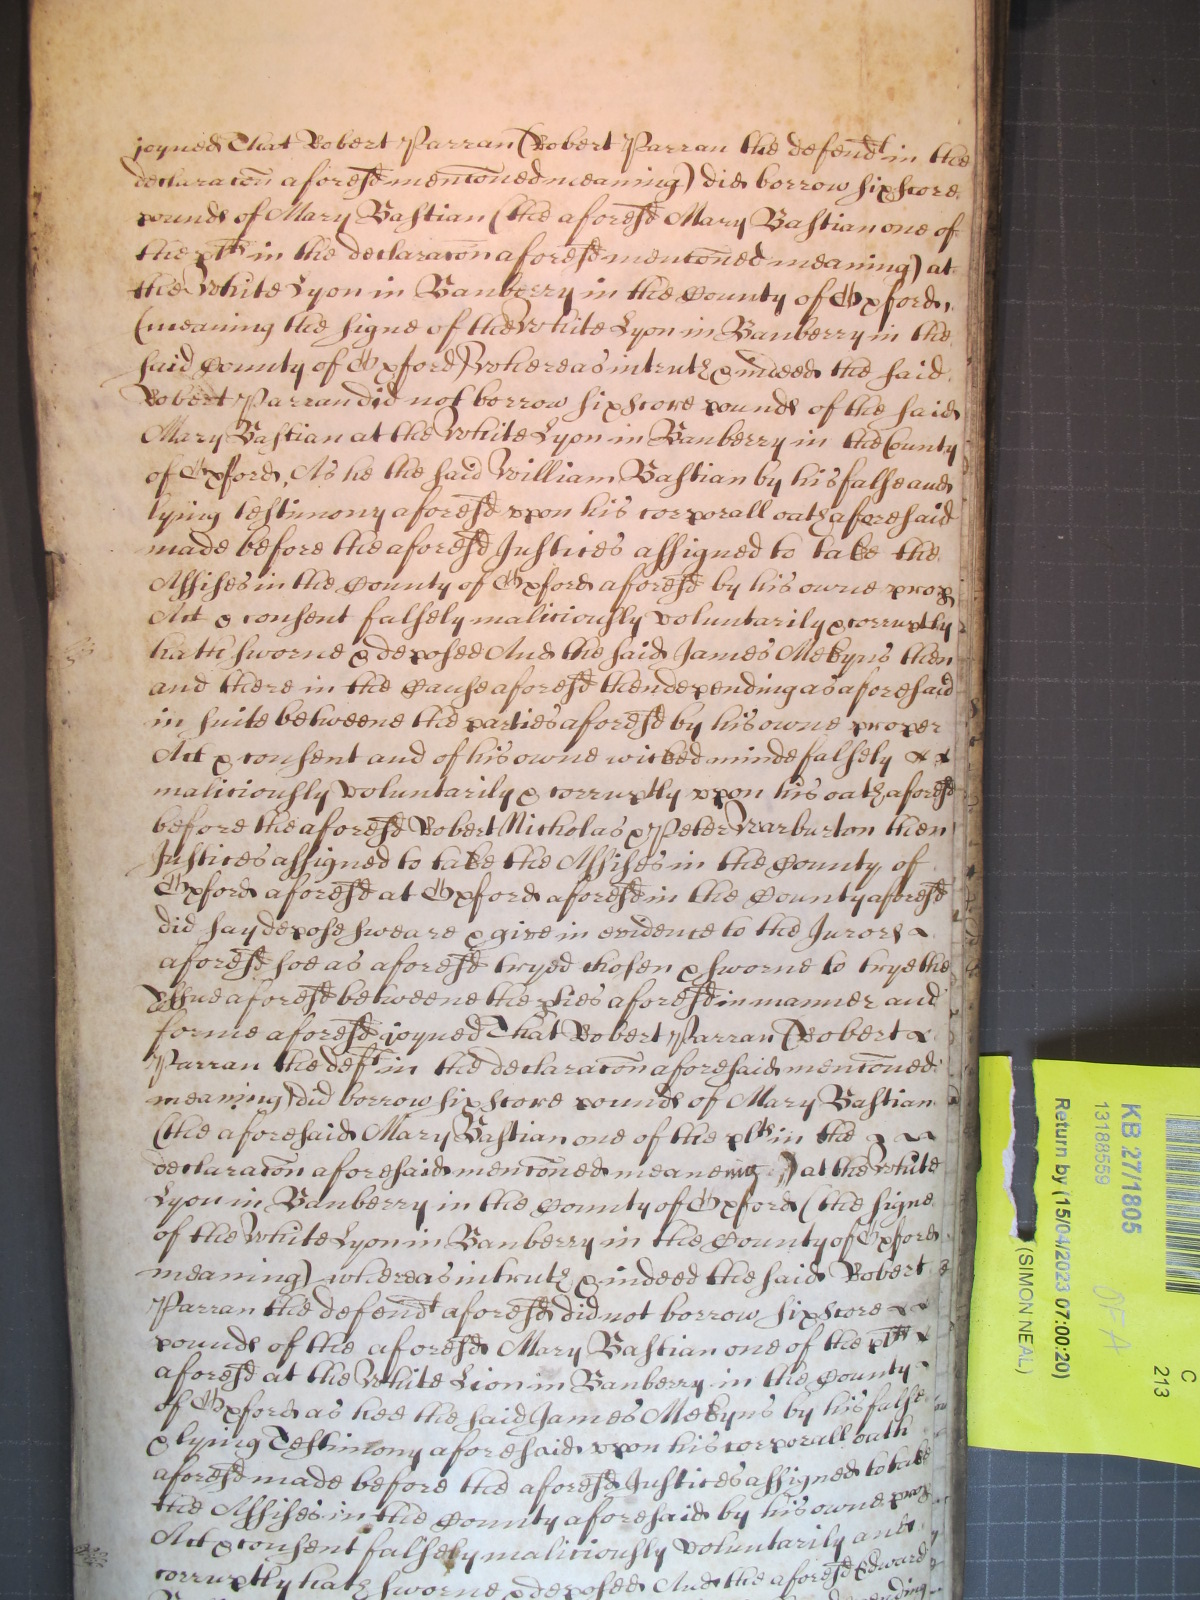 joyned That Robert Parran (Robert Parran the defendt in the
declaracon aforesd menconed meaning) did borrow six score
pounds of Mary Bastian (the aforesd Mary Bastian one of
the plts in the declaracon aforesd menconed meaning) at
the White Lyon in Banberry in the County of Oxford,
(meaning the signe of the White Lyon in Banberry in the
said County of Oxford) whereas in truth & indeed the said
Robert Parran did not borrow six score pounds of the said
Mary Bastian at the White Lyon in Banberry in the County
of Oxford, As he the said William Bastian by his false and
lying testimony aforesd upon his corporall oath aforesaid
made before the aforesd Justices assigned to take the
Assises in the County of Oxford aforesd by his owne prop
Act & consent falsely maliciously voluntarily & corruptly
hath sworne & deposed And the said James Mekyns then
and there in the Cause aforesd then depending as aforesaid
in suite betweene the parties aforesd by his owne proper
Act & consent and of his owne wicked minde falsely
maliciously voluntarily & corruptly upon his oath aforesd
before the aforesd Robert Nicholas & Peter Warburton then
Justices assigned to take the Assises in the County of
Oxford aforesd at Oxford aforesd in the County aforesd
did say depose sweare & give in evidence to the Jurors
aforesd soe as aforesd tryed chosen & sworne to trye the
Issue aforesd betweene the pties aforesd in manner and
forme aforesd joyned That Robert Parran (Robert
Parran the deft in the declaracon aforesaid menconed
meaning) did borrow six score pounds of Mary Bastian
(the aforesaid Mary Bastian one of the plts in the
declaracon aforesaid menconed meaneing) at the White
Lyon in Banberry in the County of Oxford (the signe
of the White Lyon in Banberry in the County of Oxford
meaning) whereas in truth & indeed the said Robert
Parran the defendt aforesd did not borrow six score
pounds of the aforesd Mary Bastian one of the plts
aforesd at the White Lion in Banberry in the County
of Oxford as hee the said James Mekyns by his false
& lying Testimony aforesaid upon his corporall oath
aforesd made before the aforesd Justices assigned to take
the Assises in the County aforesaid by his owne prop
Act & consent falsely maliciously voluntarily and
corruptly hath sworne & deposed And the aforesd Edward
KB 27/1805
13188559
Return by (15/04/2023 07:00:20)
(SIMON NEAL)
OFA
C
213